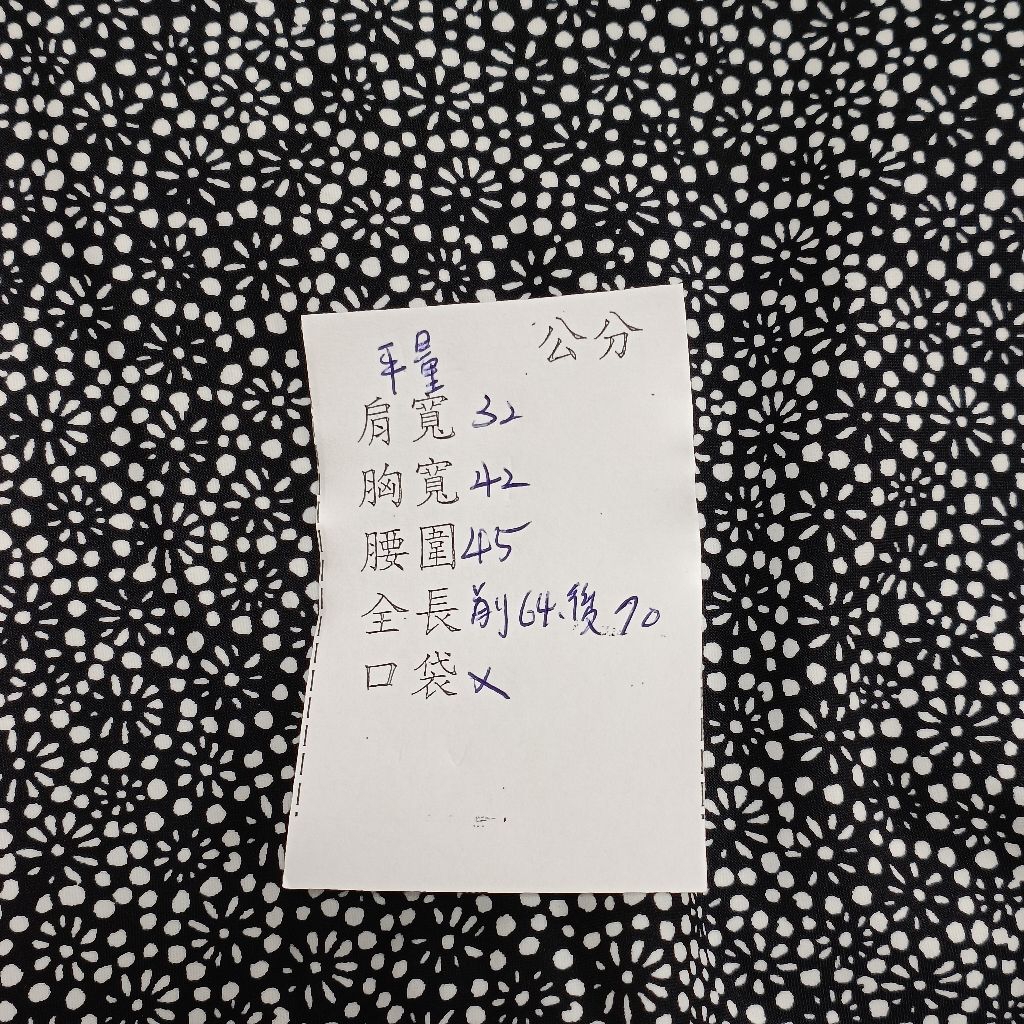 公分
平量
肩寬 32
胸寬 42
腰圍 45
全長 前64.後70
口袋 X